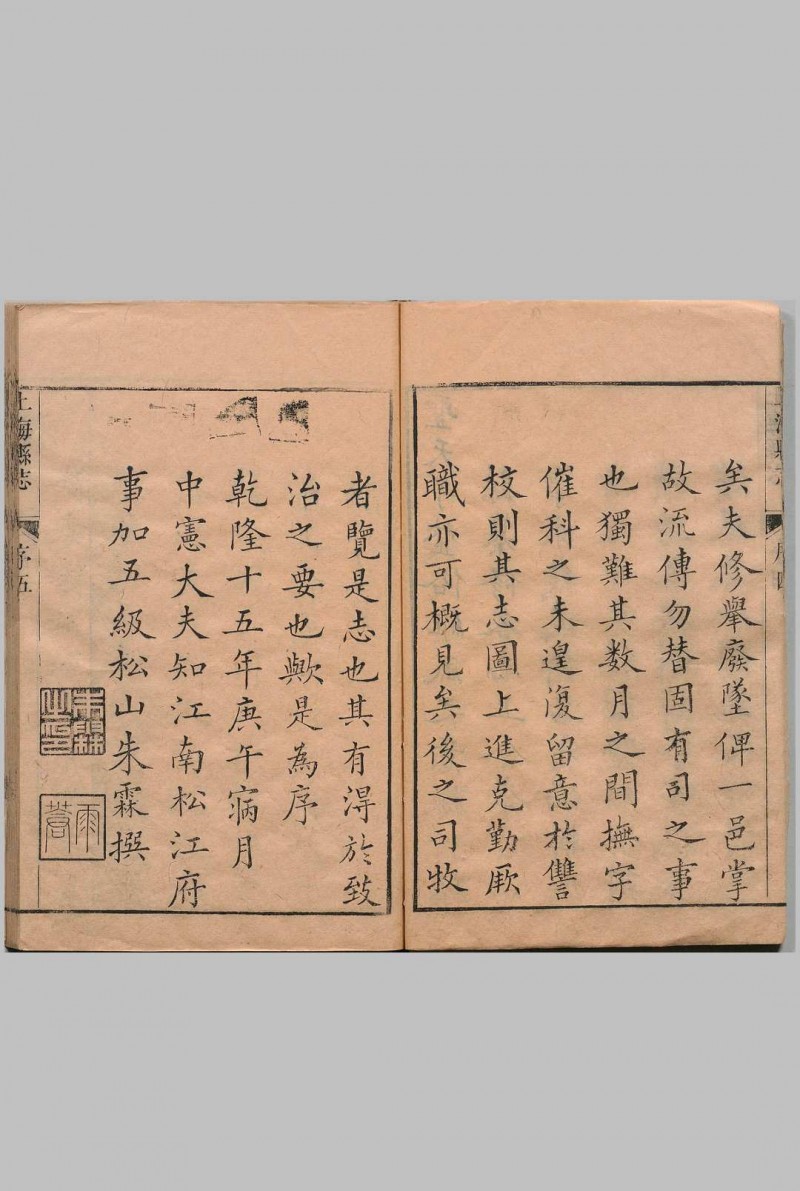 矣夫修舉廢墜俾一邑掌
故流傳勿替固有司之事
也獨難其数月之間撫字
催科之未遑復留意於讐
校則其志圖上進克勤厥
職亦可概見矣後之司牧
者覽是志也其有淂於致
治之要也歟是為序
乾隆十五年庚午寎月
中憲大夫知江南松江府
事加五級松山朱霖撰
朱霖之印
雨蒼
上海縣志
序四
上海縣志
序五